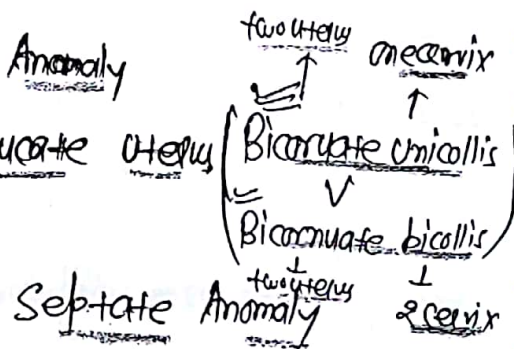 two uterus
onecervix
Anomaly
ucate uterus (Bicornuate unicollis
V
Bicornuate bicollis)
two uterus
2 cervix
Septate Anomaly